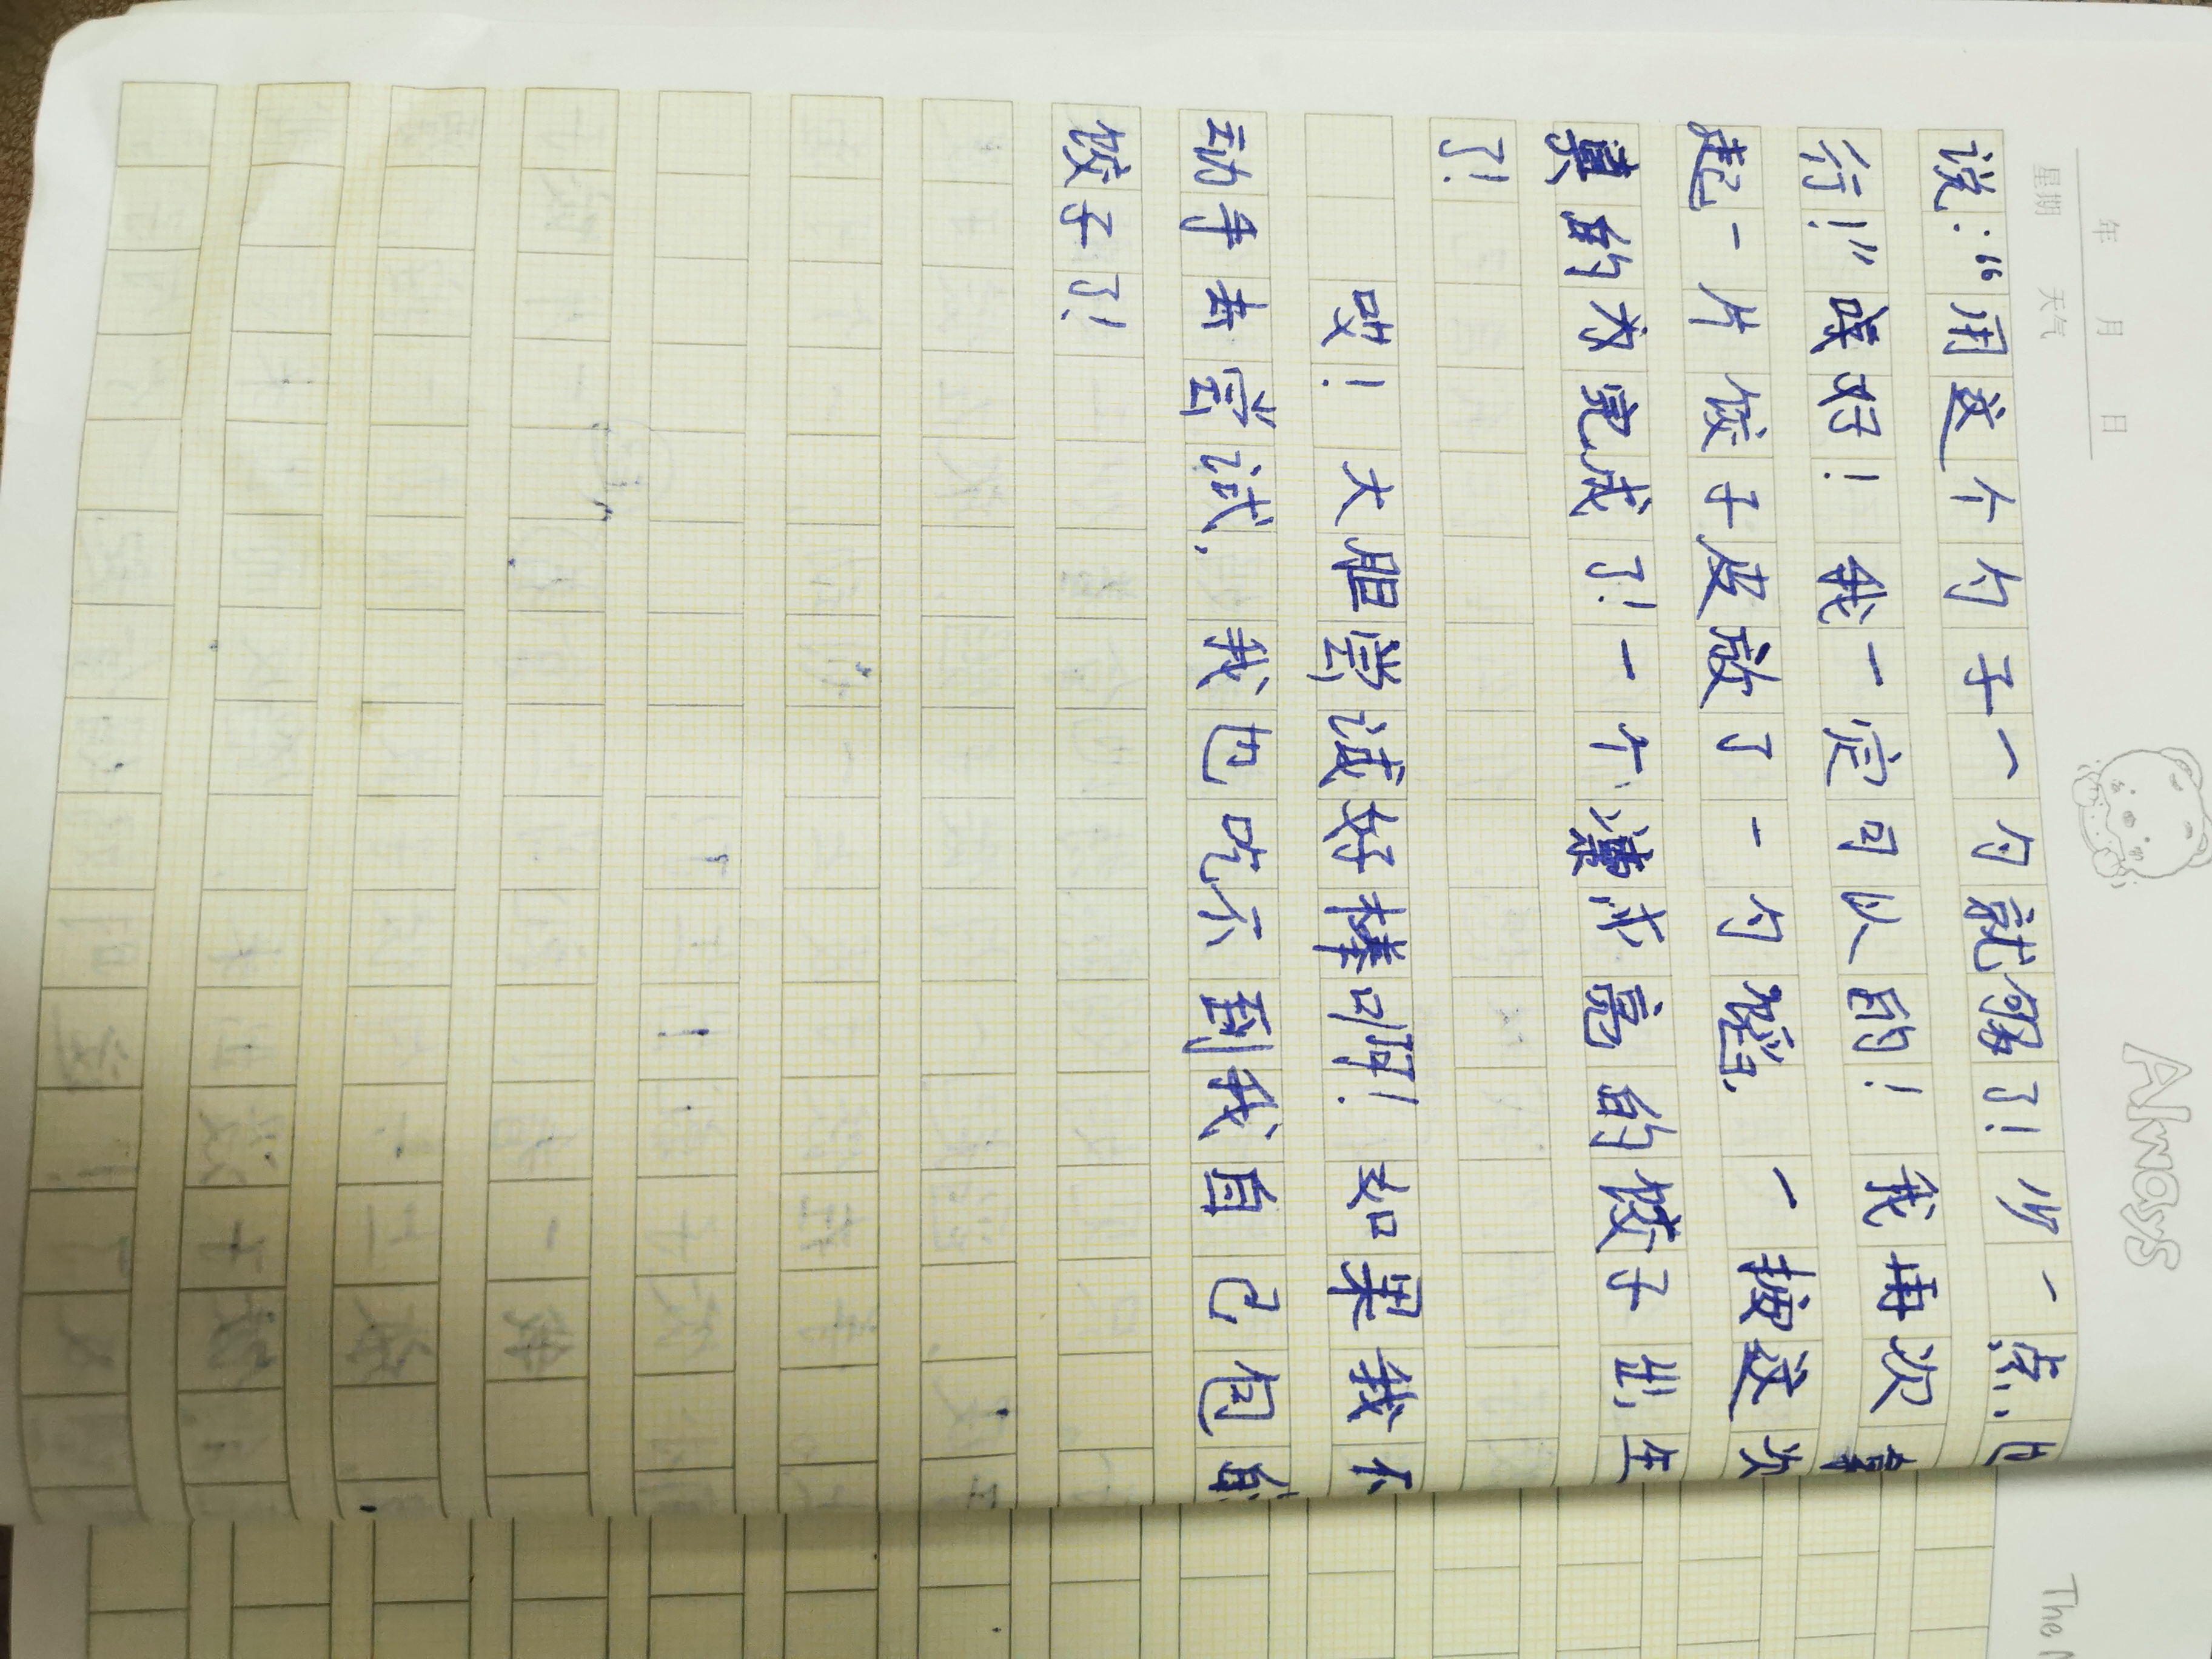 年 月 日
星期 天气
Always
说:“用这个勺子一勺就够了!少一点,也
行!”好!我一定可以的!我再次拿
起一片饺子皮放了一勺馅,一按这次
真的完成了!一个漂亮的饺子出生
了!
哎!大胆尝试好棒啊!如果我不
动手去尝试,我也吃不到我自己包的
饺子了!
The